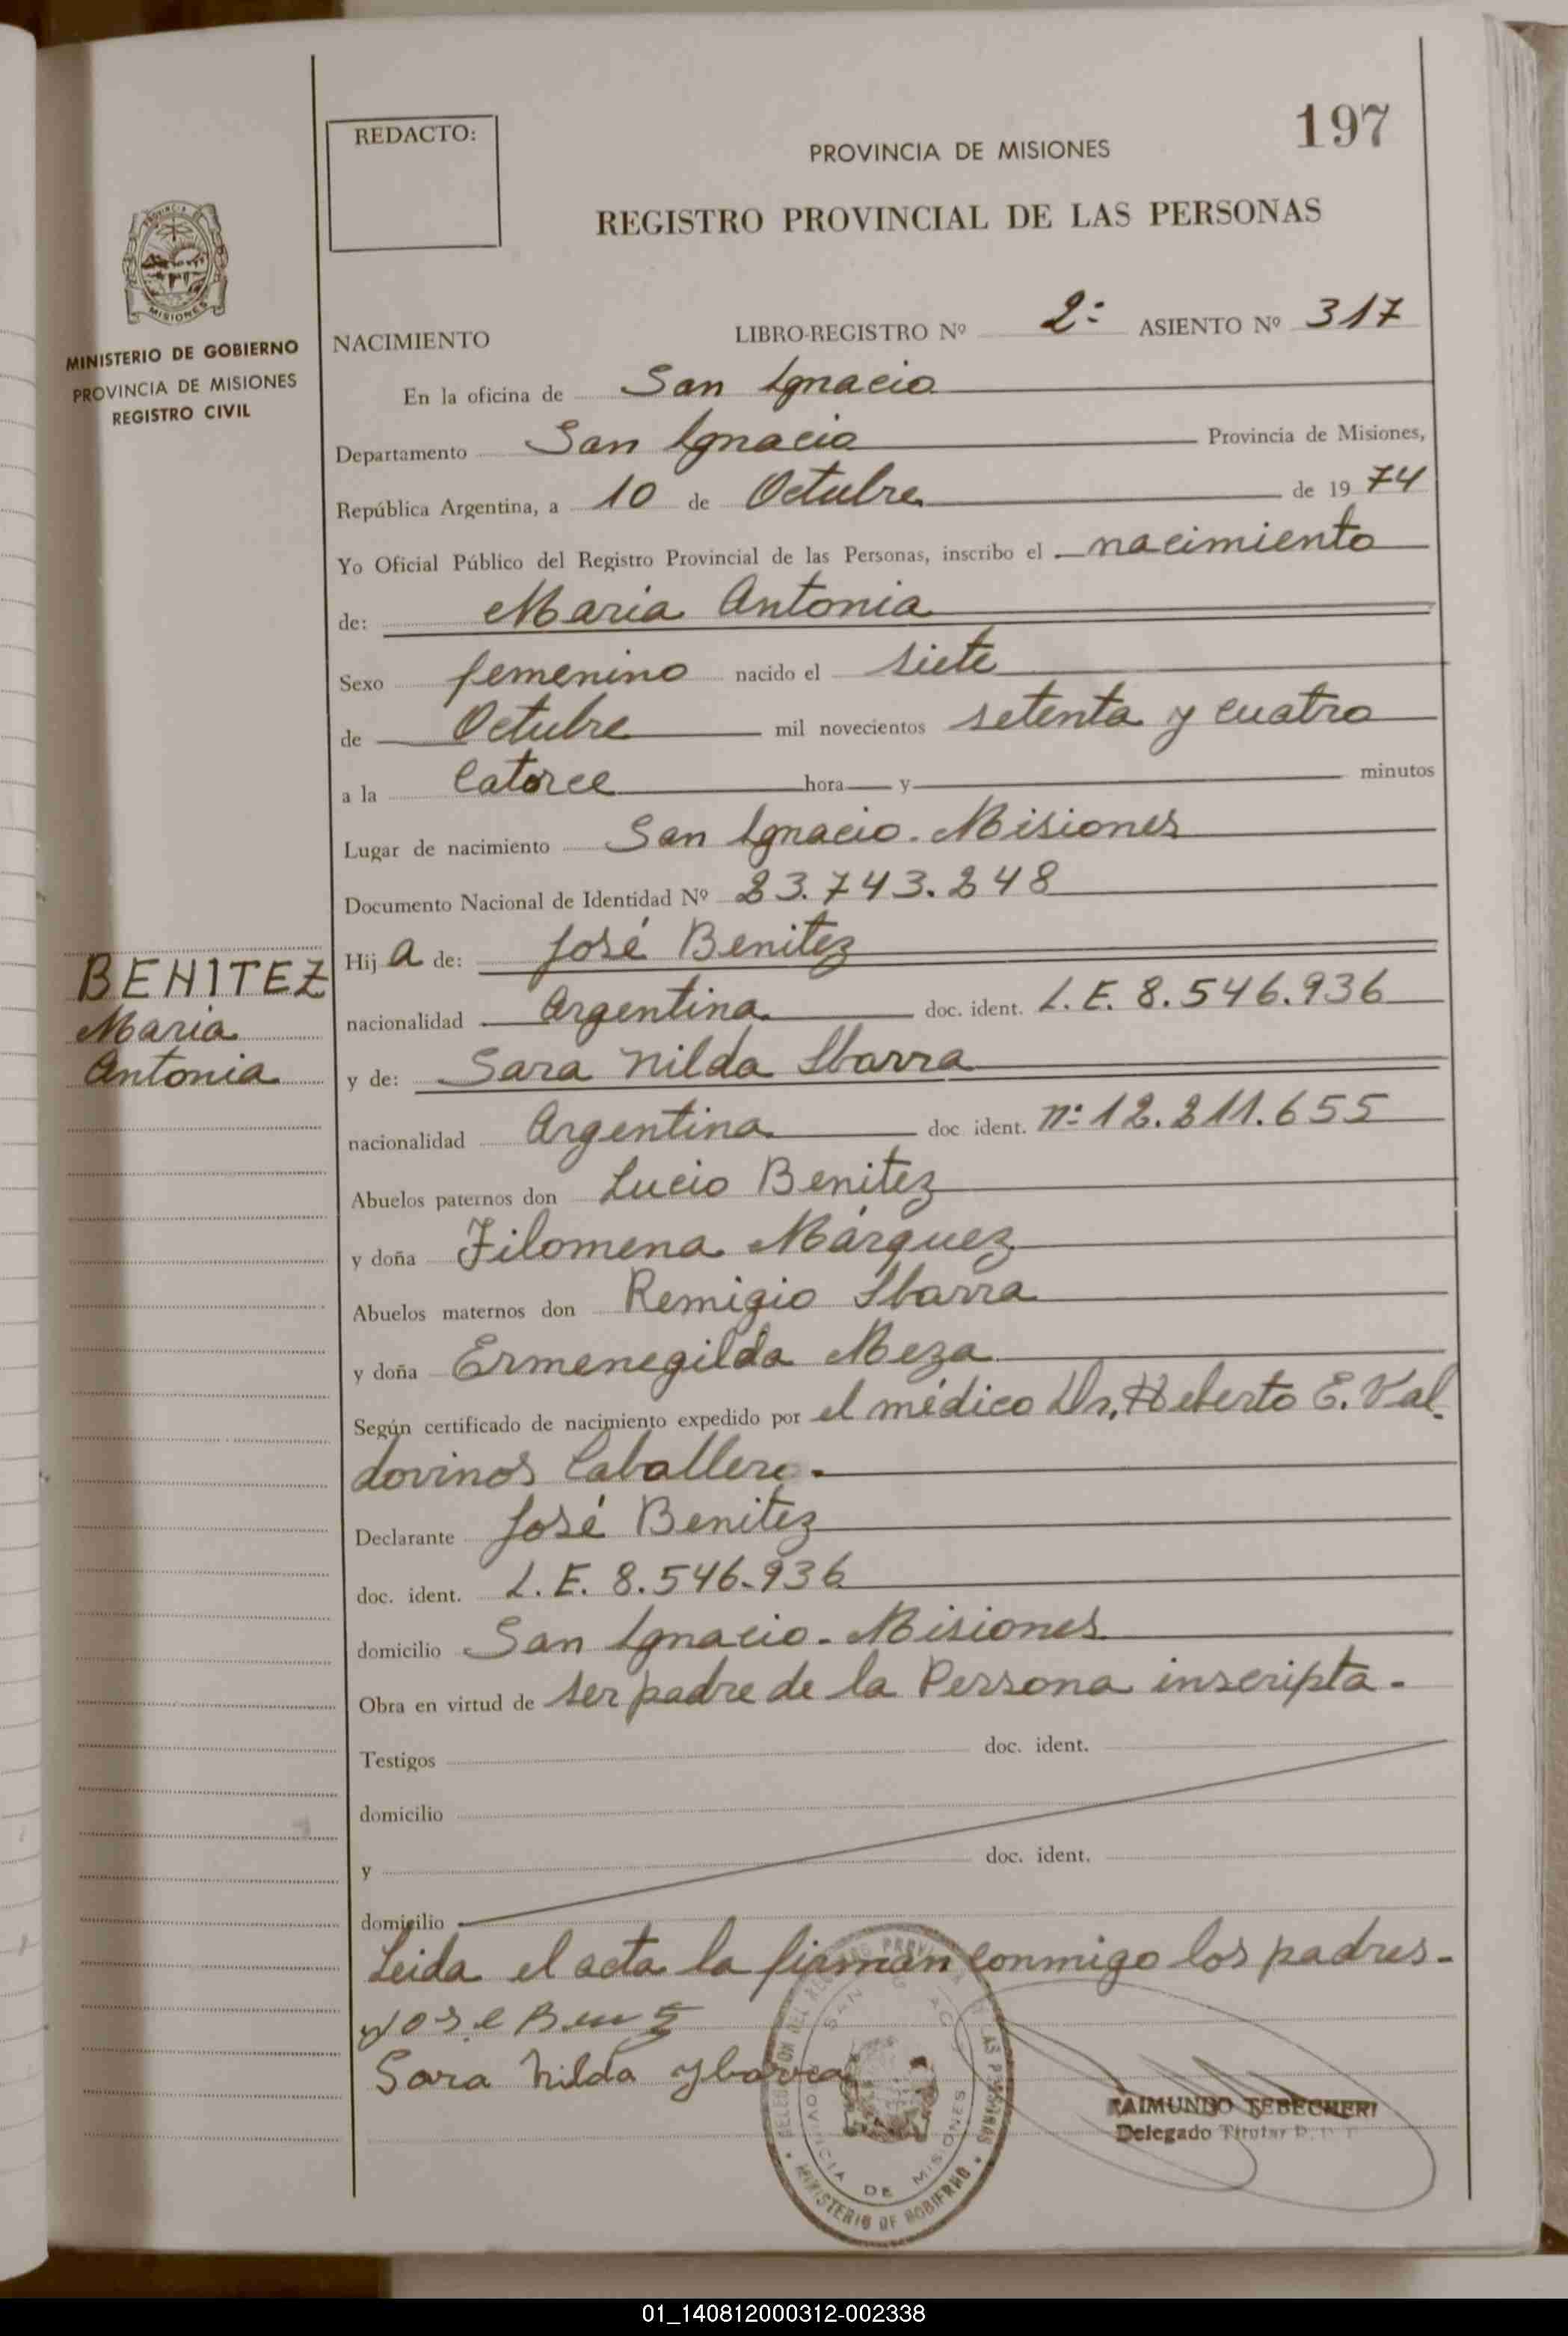 197
REDACTO:
PROVINCIA DE MISIONES
REGISTRO PROVINCIAL DE LAS PERSONAS
MISIONES
MINISTERIO DE GOBIERNO
PROVINCIA DE MISIONES
REGISTRO CIVIL
NACIMIENTO LIBRO-REGISTRO Nº 2º ASIENTO Nº 317
En la oficina de San Ignacio
Departamento San Ignacio Provincia de Misiones,
República Argentina, a 10 de Octubre de 1974
Yo Oficial Público del Registro Provincial de las Personas, inscribo el nacimiento
de: Maria Antonia
Sexo femenino nacido el siete
de Octubre mil novecientos setenta y cuatro
a la Catorce hora y minutos
Lugar de nacimiento San Ignacio. Misiones
Documento Nacional de Identidad Nº 23.743.248
BENITEZ
Maria
Antonia
Hija de: José Benitez
nacionalidad Argentina doc. ident. L. E. 8.546.936
y de: Sara Nilda Ibarra
nacionalidad Argentina doc ident. nº 12.211.655
Abuelos paternos don Lucio Benitez
y doña Filomena Márquez
Abuelos maternos don Remigio Ibarra
y doña Ermenegilda Meza
Según certificado de nacimiento expedido por el médico Dr. Heberto E. Val
dovinos Caballero.
Declarante José Benitez
doc. ident. L. E. 8.546.936
domicilio San Ignacio. Misiones
Obra en virtud de ser padre de la Persona inscripta.
Testigos doc. ident.
domicilio
y doc. ident.
domicilio
Leida el acta la firman conmigo los padres.
Jose
Sara Nilda Ybarra
MINISTERIO DE GOBIERNO
PROVINCIA DE MISIONES
RAIMUNDO TEBECHERI
Delegado Titular
01_140812000312-002338